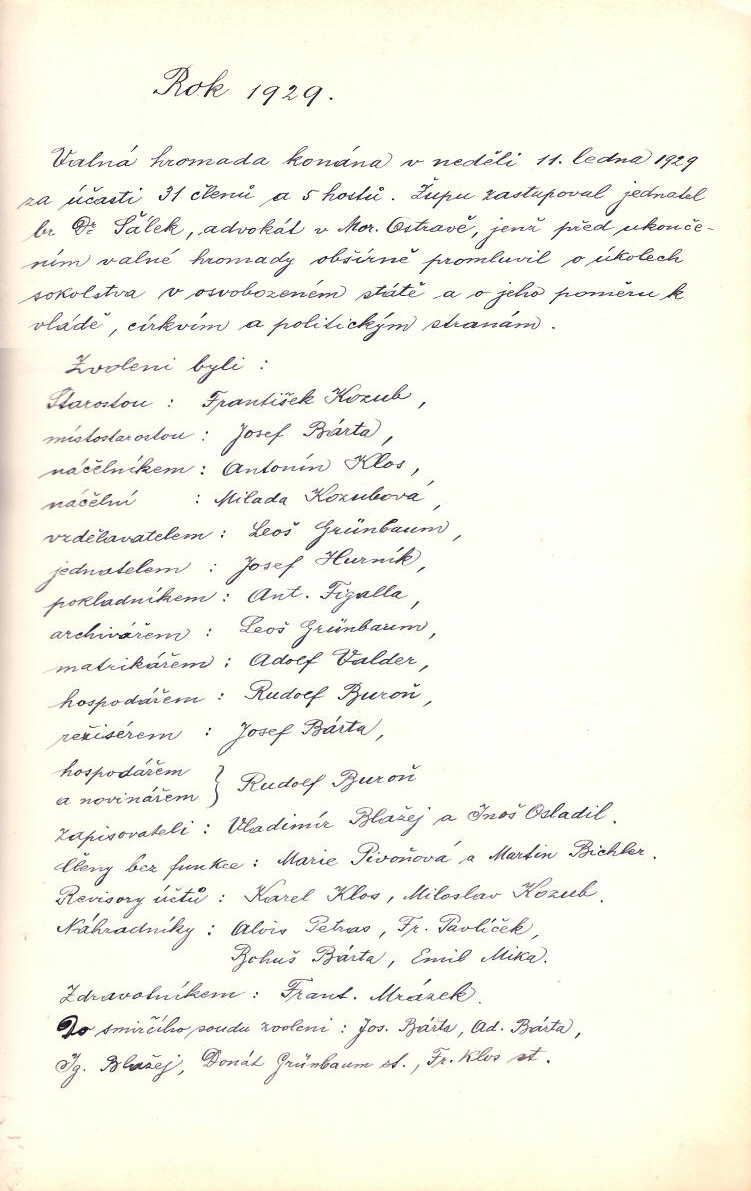 Rok 1929.
Valná hromada konána v neděli 11. ledna 1929
za účasti 31 členů a 5 hostů. Župu zastupoval jednatel
br. Dr. Šálek, advokát v Mor. Ostravě, jenž před ukonče-
ním valné hromady obšírně promluvil o úkolech
sokolstva v osvobozeném státě a o jeho poměru k
vládě, církvím a politickým stranám.
Zvoleni byli :
Starostou : František Kozub,
místostarostou : Josef Bárta,
náčelníkem : Antonín Klos,
náčelní : Milada Kozubová,
vzdělavatelem : Leoš Grünbaum,
jednatelem : Josef Hurník,
pokladníkem : Ant. Figalla,
archivářem : Leoš Grünbaum,
matrikářem : Adolf Valder,
hospodářem : Rudolf Buroň,
režisérem : Josef Bárta,
hospodářem
a novinářem } Rudolf Buroň
zapisovateli : Vladimír Blažej a Inoš Osladil.
Členy bez funkce : Marie Pivoňová a Martin Bichler.
Revisory účtů : Karel Klos, Miloslav Kozub.
Náhradníky : Alois Petras, Fr. Pavlíček,
Bohuš Bárta, Emil Mika.
Zdravotníkem : Frant. Mrázek.
Do smírčího soudu zvoleni : Jos. Bárta, Ad. Bárta,
Ig. Blažej, Donát Grünbaum st., Fr. Klos st.